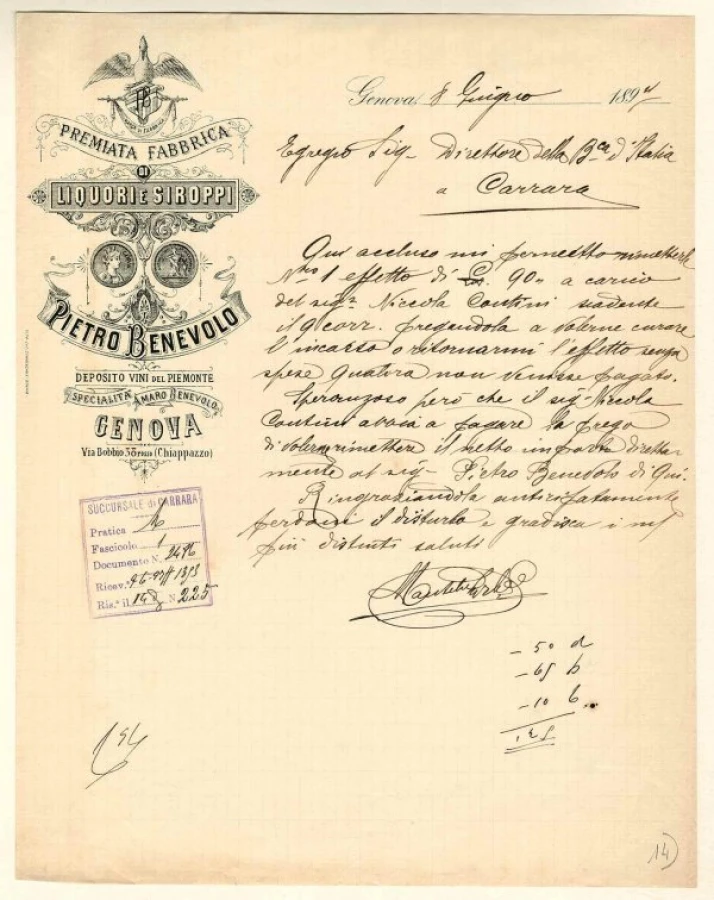 PB
MARCA DI FABBRICA
PREMIATA FABBRICA
DI
LIQUORI E SIROPPI
PIETRO BENEVOLO
DEPOSITO VINI DEL PIEMONTE
SPECIALITÀ AMARO BENEVOLO
GENOVA
Via Bobbio 38 rosso (Chiappazzo)
Genova, 8 Giugno 1894
Egregio Sig. Direttore della Bca d'Italia
a Carrara
Qui accluso mi permetto rimetterle
Nro 1 effetto di L. 90 a carico
del sigr Niccola Contini scadente
il 9 corr. pregandola a volerne curare
l'incasso o ritornarmi l'effetto senza
spese qualora non venisse pagato.
Speranzoso però che il sig. Niccola
Contini avrà a pagare la prego
di volere rimettere il netto importo diretta-
mente al sig. Pietro Benevolo di qui.
Ringraziandola anticipatamente
perdoni il disturbo e gradisca i miei
più distinti saluti
SUCCURSALE di CARRARA
Pratica
Fascicolo 1
Documento N. 2496
Ricev.
Ris.º il N. 225
- 50 d
- 65 b
- 10 b
125
14)